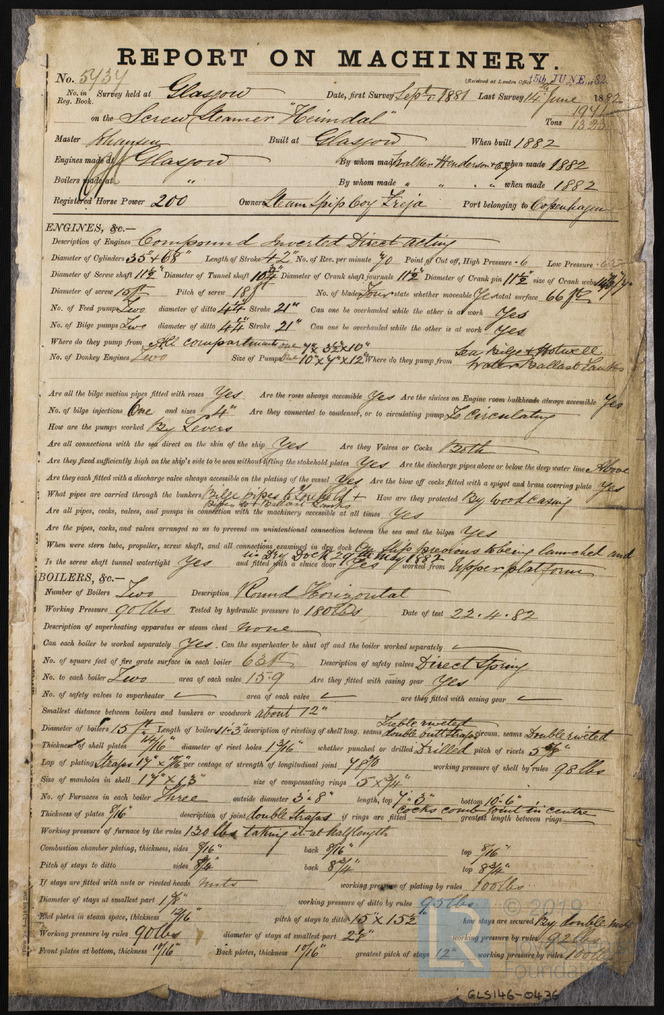 REPORT ON MACHINERY.
No. 5737 (Received at London Office 15th JUNE 82
No. in Reg. Book. Survey held at Glasgow Date, first Survey Sept 1881 Last Survey 14 June 1882
on the Screw Steamer "Heimdal" Tons
Master Built at Glasgow When built 1882
Engines made at Glasgow By whom made Walker Henderson & Co when made 1882
Boilers made at " By whom made " " when made 1882
Registered Horse Power 200 Owners Steam Ship Coy Freja Port belonging to Copenhagen
ENGINES, &c.—
Description of Engines Compound Inverted Direct Acting
Diameter of Cylinders 35" & 68" Length of Stroke 42" No. of Rev. per minute 70 Point of Cut off, High Pressure .6 Low Pressure
Diameter of Screw shaft 11½" Diameter of Tunnel shaft 10¾" Diameter of Crank shaft journals 11½" Diameter of Crank pin 11½" size of Crank webs
Diameter of screw 15ft Pitch of screw 18ft No. of blades Four state whether moveable Yes total surface 66 ft
No. of Feed pumps Two diameter of ditto 4¼" Stroke 21" Can one be overhauled while the other is at work Yes
No. of Bilge pumps Two diameter of ditto 4¼" Stroke 21" Can one be overhauled while the other is at work Yes
Where do they pump from All compartments
No. of Donkey Engines Two Size of Pumps One 7" x 3½" x 10" One 10" x 7" x 12" Where do they pump from Sea Bilge & Hotwell Water Ballast Tanks
Are all the bilge suction pipes fitted with roses Yes Are the roses always accessible Yes Are the sluices on Engine room bulkheads always accessible Yes
No. of bilge injections One and sizes 4" Are they connected to condenser, or to circulating pump To Circulating
How are the pumps worked By Levers
Are all connections with the sea direct on the skin of the ship Yes Are they Valves or Cocks Both
Are they fixed sufficiently high on the ship's side to be seen without lifting the stokehold plates Yes Are the discharge pipes above or below the deep water line Above
Are they each fitted with a discharge valve always accessible on the plating of the vessel Yes Are the blow off cocks fitted with a spigot and brass covering plate Yes
What pipes are carried through the bunkers Bilge pipes to Forehold + How are they protected By wood casing
Are all pipes, cocks, valves, and pumps in connection with the machinery accessible at all times Yes
Are the pipes, cocks, and valves arranged so as to prevent an unintentional connection between the sea and the bilges Yes
When were stern tube, propeller, screw shaft, and all connections examined in dry dock On Ship previous to being launched and in Dry Dock 29th May 1882
Is the screw shaft tunnel watertight Yes and fitted with a sluice door Yes worked from Upper platform
BOILERS, &c.—
Number of Boilers Two Description Round Horizontal
Working Pressure 90 lbs Tested by hydraulic pressure to 180 lbs Date of test 22.4.82
Description of superheating apparatus or steam chest none
Can each boiler be worked separately Yes Can the superheater be shut off and the boiler worked separately
No. of square feet of fire grate surface in each boiler 63 ft Description of safety valves Direct Spring
No. to each boiler Two area of each valve 15.9 Are they fitted with easing gear Yes
No. of safety valves to superheater area of each valve are they fitted with easing gear
Smallest distance between boilers and bunkers or woodwork about 12"
Diameter of boilers 15 ft Length of boilers 11'-3" description of riveting of shell long. seams Treble riveted double butt straps circum. seams Double riveted
Thickness of shell plates diameter of rivet holes 1 3/16" whether punched or drilled Drilled pitch of rivets
Lap of plating Straps per centage of strength of longitudinal joint working pressure of shell by rules 98 lbs
Size of manholes in shell 17" x 13" size of compensating rings 5 x ¾"
No. of Furnaces in each boiler Three outside diameter 3'-8" length, top 7'-3" bottom 10'-6"
Thickness of plates 9/16" description of joint double straps if rings are fitted Cocks comb joint in centre greatest length between rings
Working pressure of furnace by the rules 130 lbs taking it at half length
Combustion chamber plating, thickness, sides 9/16" back 9/16" top 9/16"
Pitch of stays to ditto sides 8¾" back 8¾" top 8¾"
If stays are fitted with nuts or riveted heads nuts working pressure of plating by rules 100 lbs
Diameter of stays at smallest part working pressure of ditto by rules 95 lbs
End plates in steam space, thickness pitch of stays to ditto 15" x 15½" how stays are secured By double nuts
Working pressure by rules 90 lbs diameter of stays at smallest part working pressure by rules 92 lbs
Front plates at bottom, thickness 11/16" Back plates, thickness greatest pitch of stays 12" working pressure by rules 100 lbs
© 2019
Foundation
GLS146-0436